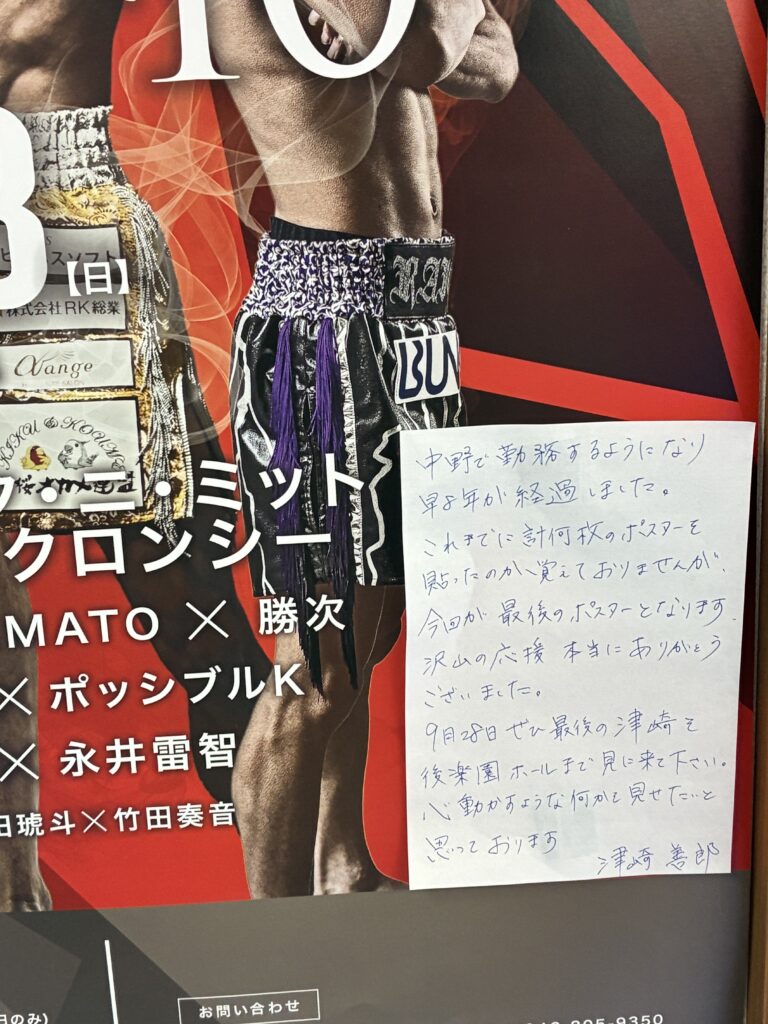 10
8【日】
スソフト
株式会社RK総業
αvange
フ・ニ・ミット
クロンシー
MATO × 勝次
× ポッシブルK
× 永井雷智
田琥斗×竹田奏音
BUN
中野で勤務するようになり
早8年が経過しました。
これまでに計何枚のポスターを
貼ったのか覚えておりませんが、
今回が最後のポスターとなります。
沢山の応援 本当にありがとう
ございました。
9月28日ぜひ最後の津崎を
後楽園ホールまで見に来て下さい。
心動かすような何かを見せたいと
思っております
津崎 善郎
日のみ)
お問い合わせ